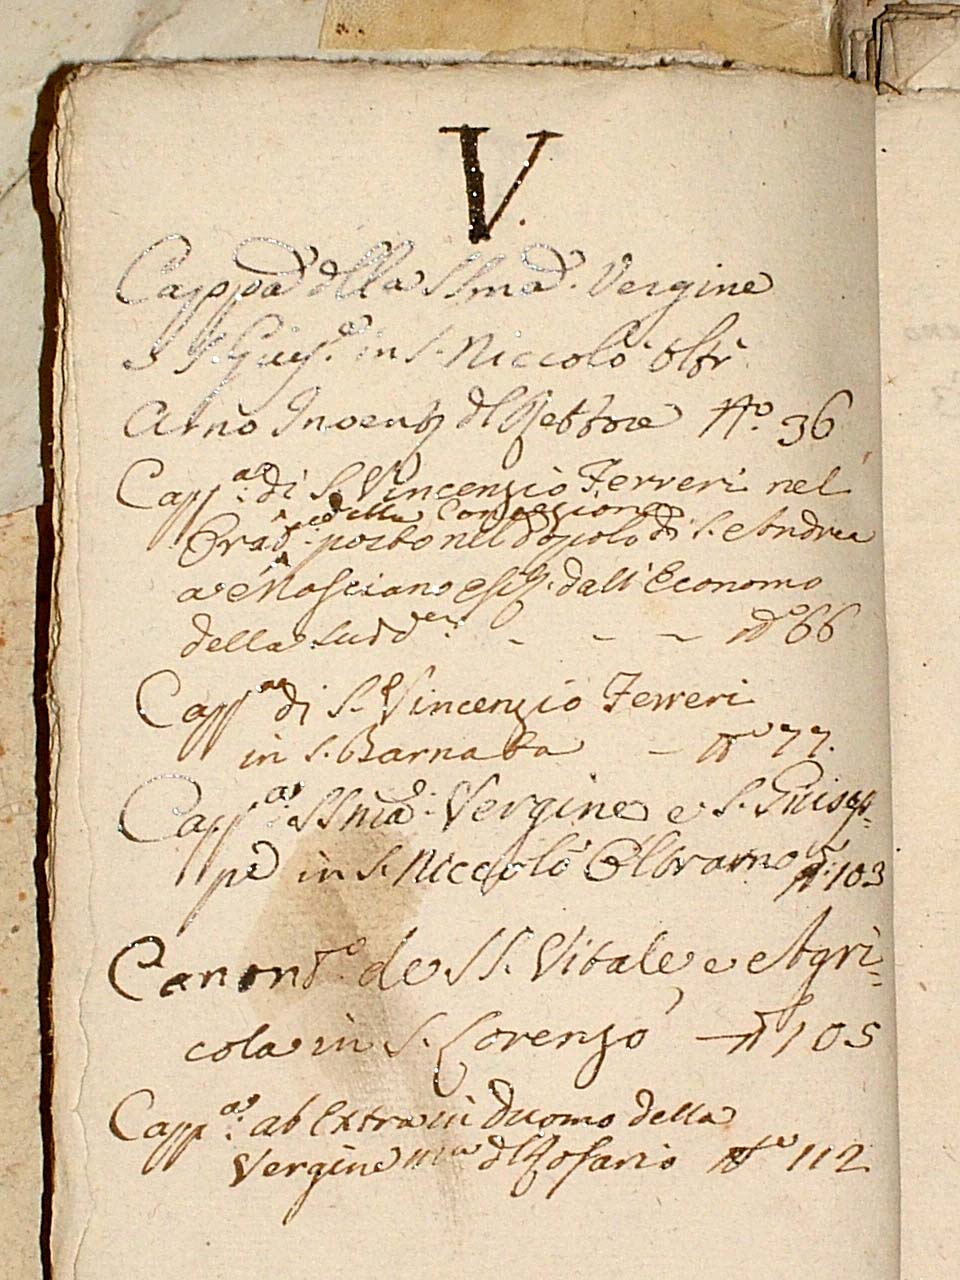 V.
Capp.a della SSma. Vergine
e S. Gius.e in S. Niccolò oltr
Arno Inoenz del Rettore No. 36
Capp.a di S. Vincenzio Ferreri nel
della Concezione
Orat.o posto nel Popolo di S. Andrea
a Mosciano esis. dall'Economo
della sudd.a - - - No. 66
Capp.a di S. Vincenzio Ferreri
in S. Barnaba - No 77.
Capp.a SSma. Vergine e S. Giusep-
pe in S. Niccolò Oltrarno No. 103
Canon.to de SS. Vitale e Agri-
cola in S. Lorenzo - No 105
Capp.a ab extra in Duomo della
Vergine ma del Rosario No 112